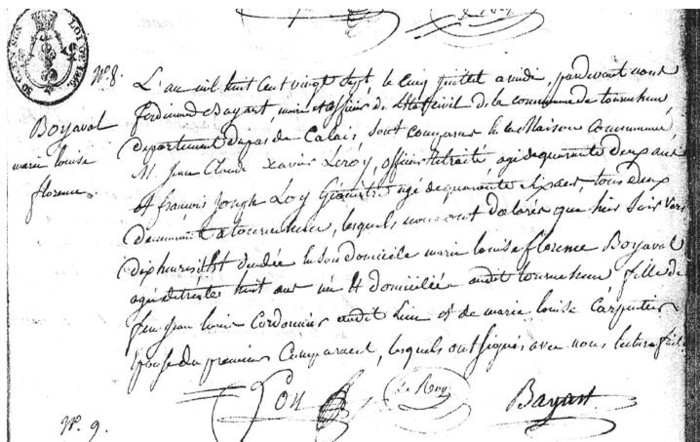 N.° 8.
Boyaval
marie louise
florence
L'an mil huit cent vingt sept, le cinq juillet a midi, pardevant nous
ferdinand Bayart, maire officier de l'état civil de la commune de tournehem
département du pas de Calais, sont comparus à la Maison Commune,
M. Jean Claude Xavier Leroy, officier retraité agé de quarante deux ans
et françois Joseph Loy agé de quarante six ans, tous deux
demeurant a tournehem, lesquels nous ont déclarés que hier soir vers
dix heures est décédée en son domicile marie louise florence Boyaval
agée de trente huit ans née et domiciliée audit tournehem fille de
feu jean louis Cordonnier audit lieu et de marie louise Carpentier
épouse du premier Comparant, lesquels ont signés avec nous lecture faite.
Loy
Le Roy
Bayart
N.° 9.